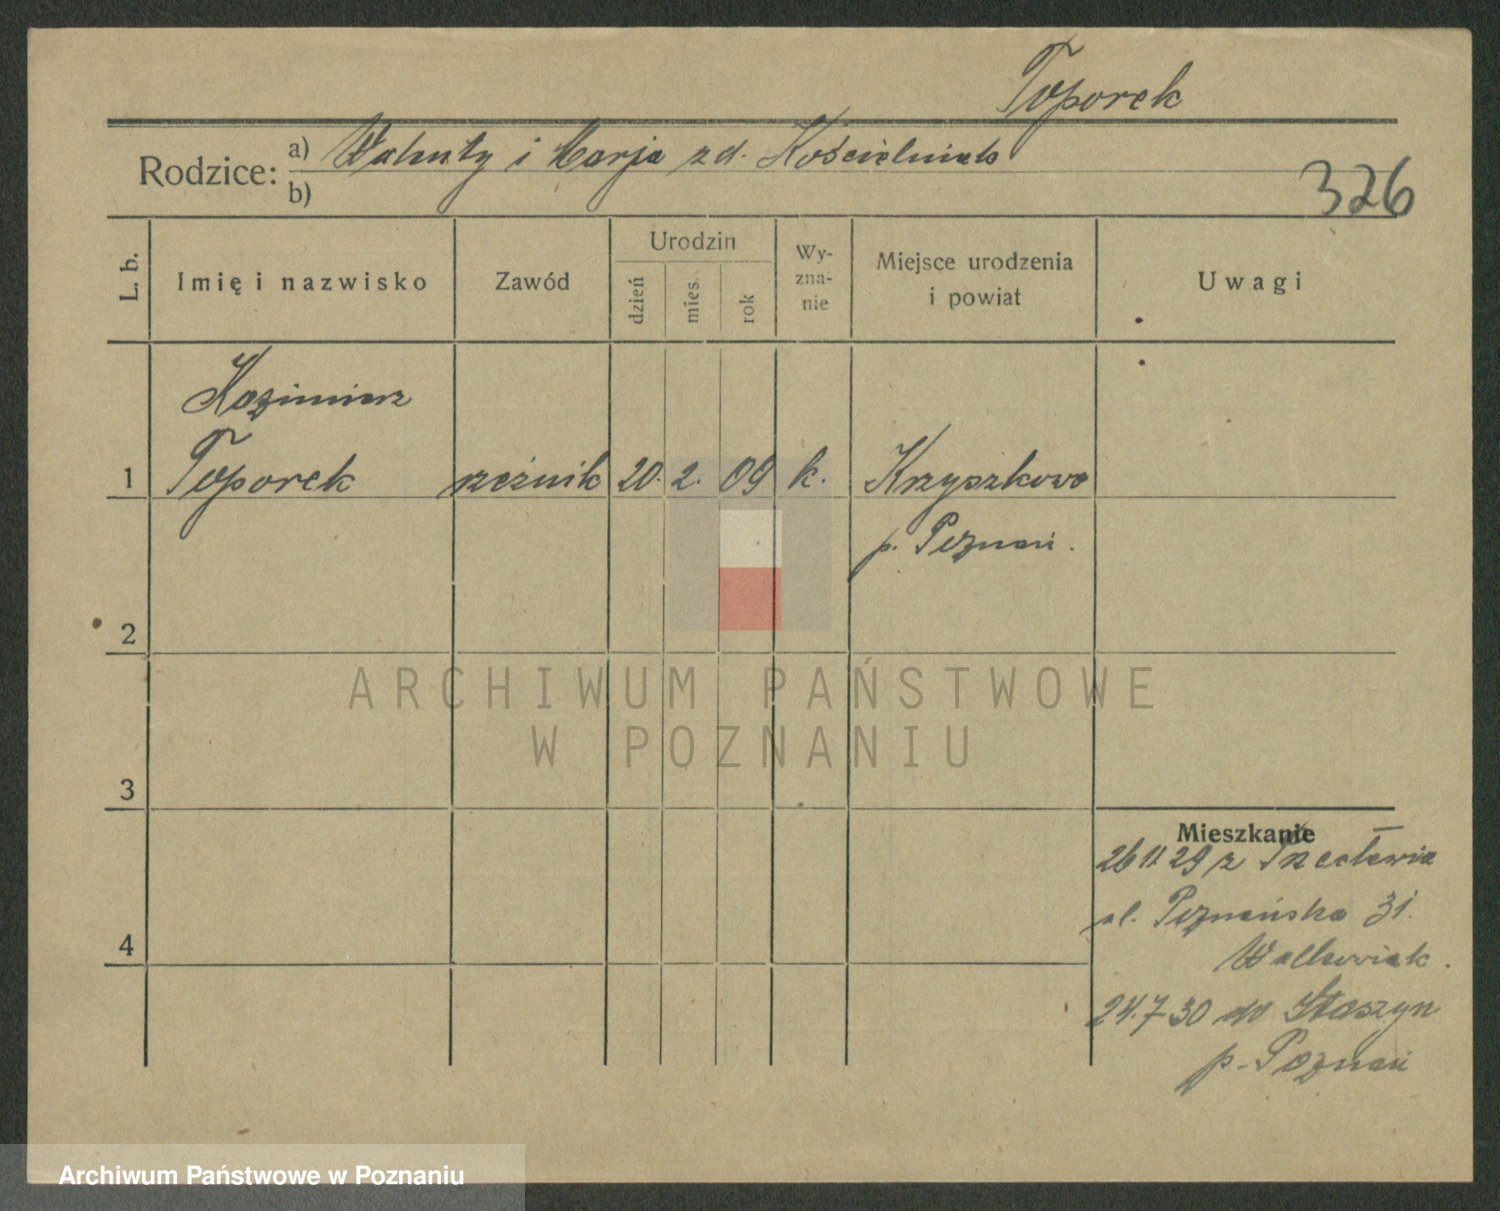 Toporek
Rodzice: a) Walenty i Marja zd. Kościelniak
b)
326
L. b.
Imię i nazwisko
Zawód
Urodzin
dzień
mies.
rok
Wy-
zna-
nie
Miejsce urodzenia
i powiat
Uwagi
Kazimierz
1 Toporek rzeźnik 20. 2. 09 k. Krzyszkowo
p. Poznań.
2
ARCHIWUM PAŃSTWOWE
W POZNANIU
3
Mieszkanie
26 11 29 z
ul. Poznańska 31.
4
Walkowiak.
24.7 30 do
p. Poznań
Archiwum Państwowe w Poznaniu